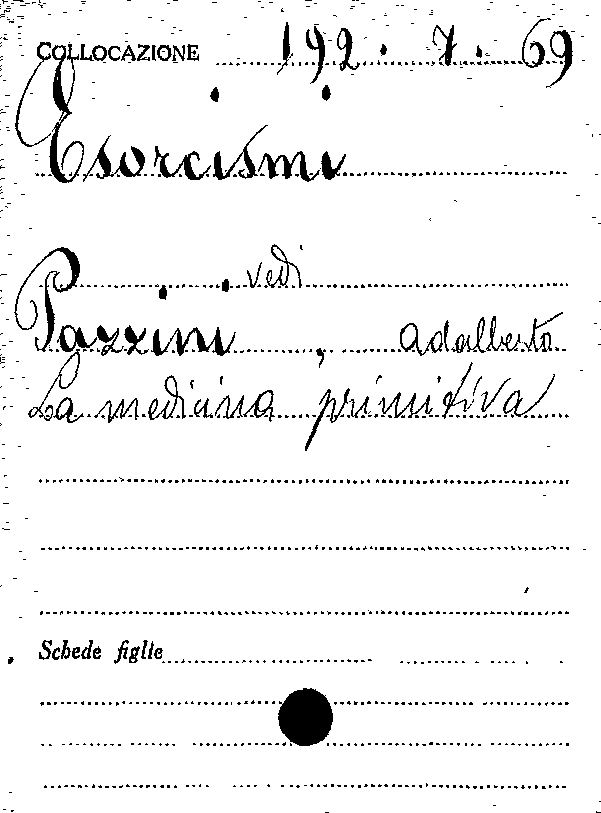 COLLOCAZIONE 192.7.69
Esorcismi
vedi
Pazzini, Adalberto
La medicina primitiva
Schede figlie